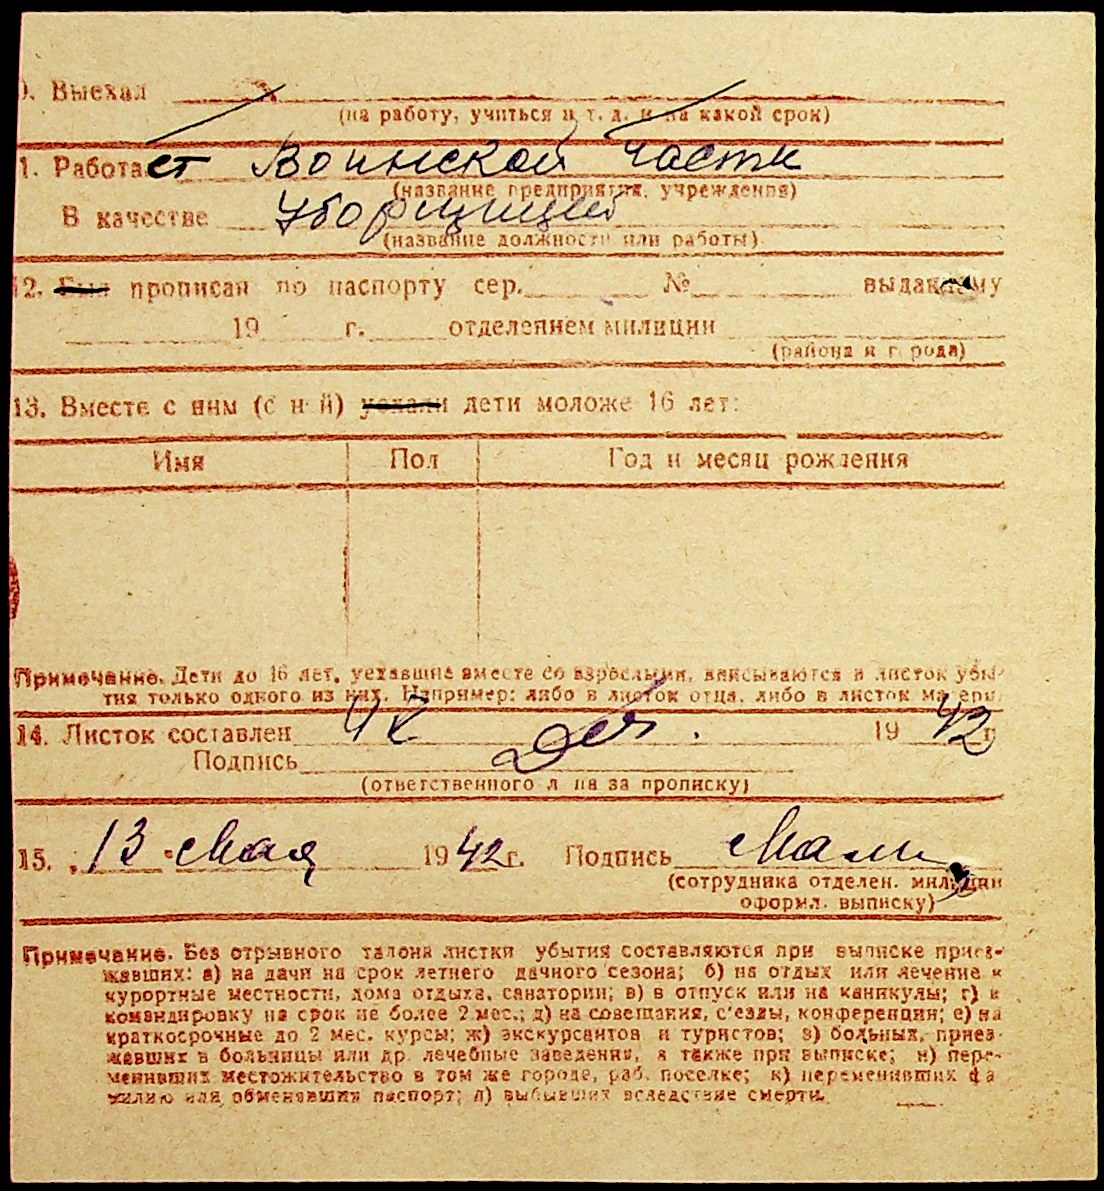 ). Выехал
(на работу, учиться и т. д. и на какой срок)
1. Работает Воинской части
(название предприятия, учреждения)
В качестве Уборщицей
(название должности или работы)
2. Был прописан по паспорту сер. № выданному
19 г. отделением милиции
(района и города)
13. Вместе с ним (с ней) уехали дети моложе 16 лет:
Имя Пол Год и месяц рождения
Примечание. Дети до 16 лет, уехавшие вместе со взрослыми, вписываются в листок убы-
тия только одного из них. Например: либо в листок отца, либо в листок матери.
14. Листок составлен 1942 г.
Подпись
(ответственного лица за прописку)
15. „13“ Мая 1942 г. Подпись
(сотрудника отделен. милиции
оформл. выписку)
Примечание. Без отрывного талона листки убытия составляются при выписке приез-
жавших: а) на дачи на срок летнего дачного сезона; б) на отдых или лечение в
курортные местности, дома отдыха, санатории; в) в отпуск или на каникулы; г) в
командировку на срок не более 2 мес.; д) на совещания, с'езды, конференции; е) на
краткосрочные до 2 мес. курсы; ж) экскурсантов и туристов; з) больных, приез-
жавших в больницы или др. лечебные заведения, а также при выписке; и) пере-
менивших местожительство в том же городе, раб. поселке; к) переменивших фа
милию или обменявших паспорт; л) выбывших вследствие смерти.